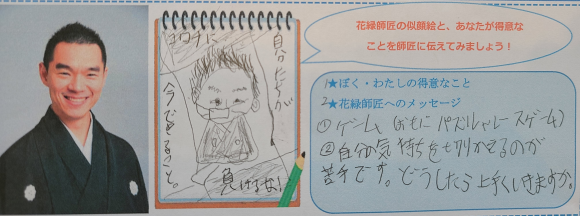 花緑師匠の似顔絵と、あなたが得意な
ことを師匠に伝えてみましょう！
コロナに
自分たちが
今できること。
負けるな!
1★ぼく・わたしの得意なこと
2★花緑師匠へのメッセージ
①ゲーム(おもにパズルやレースゲーム)
②自分の気持ちを切りかえるのが
苦手です。どうしたら上手くいきますか。